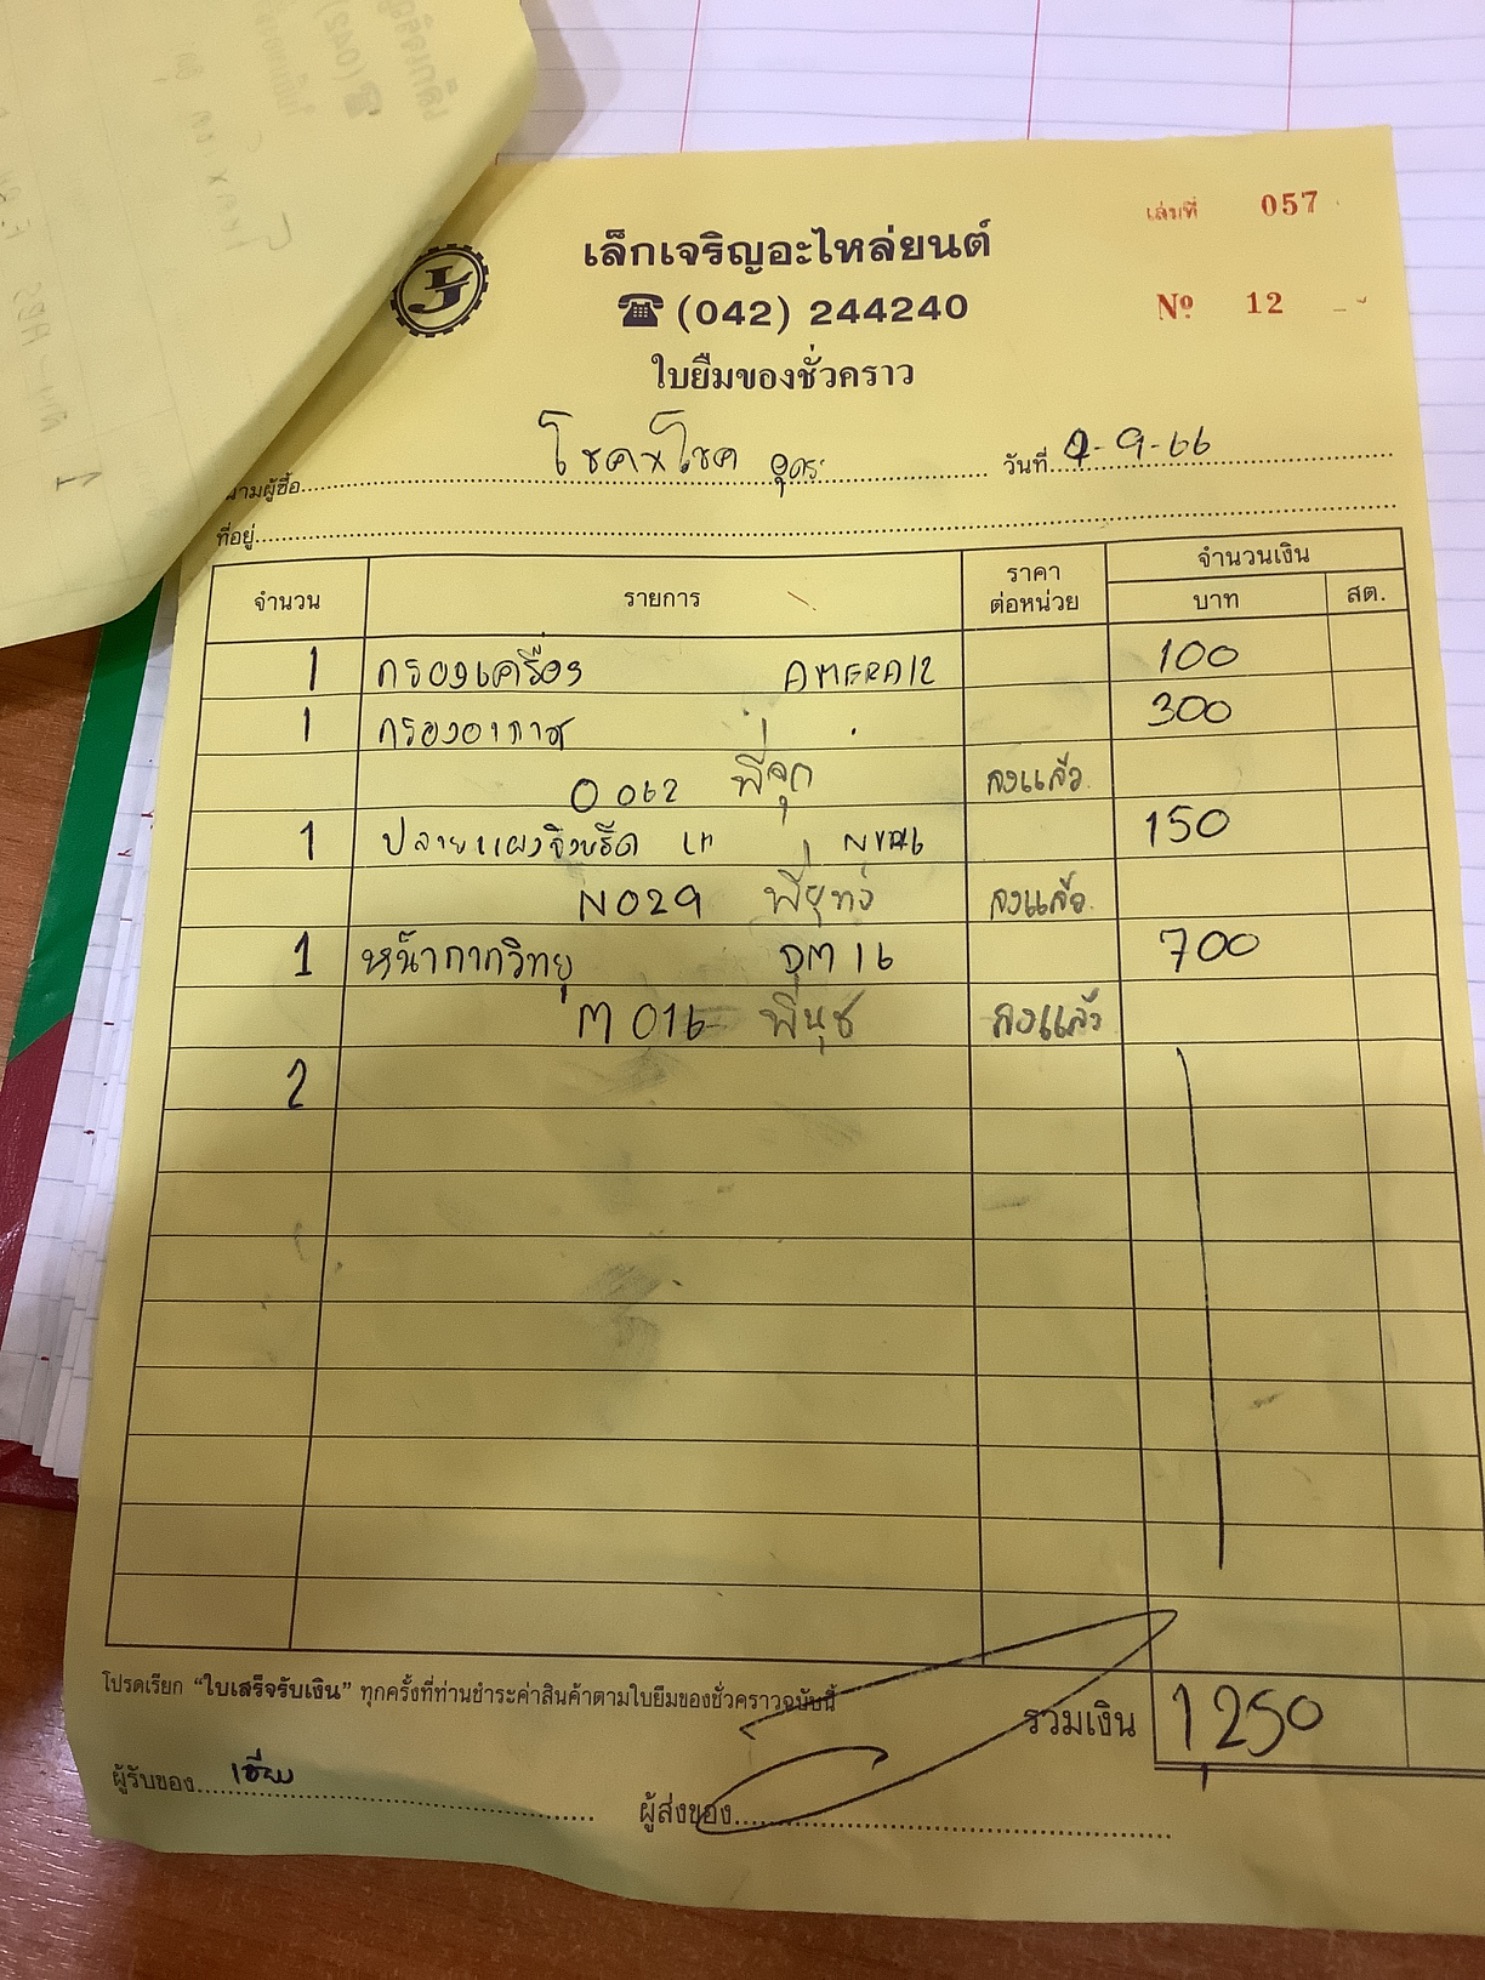 เล่มที่ 057
เล็กเจริญอะไหล่ยนต์
☎ (042) 244240
Nº 12
ใบยืมของชั่วคราว
นามผู้ซื้อ โชค x โชค อุดร วันที่ -9-66
ที่อยู่
จำนวน รายการ ราคาต่อหน่วย จำนวนเงิน บาท สต.
1 กรองเครื่อง 100
1 กรองอากาศ 300
0062 พี่จุก ลงแล้ว
1 ปลายแผงจิ้งหรีด 150
N029 พี่ยุทธ ลงแล้ว
1 หน้ากากวิทยุ 700
M016 พี่นุช ลงแล้ว
2
โปรดเรียก "ใบเสร็จรับเงิน" ทุกครั้งที่ท่านชำระค่าสินค้าตามใบยืมของชั่วคราวฉบับนี้
รวมเงิน 1,250
ผู้รับของ
ผู้ส่งของ